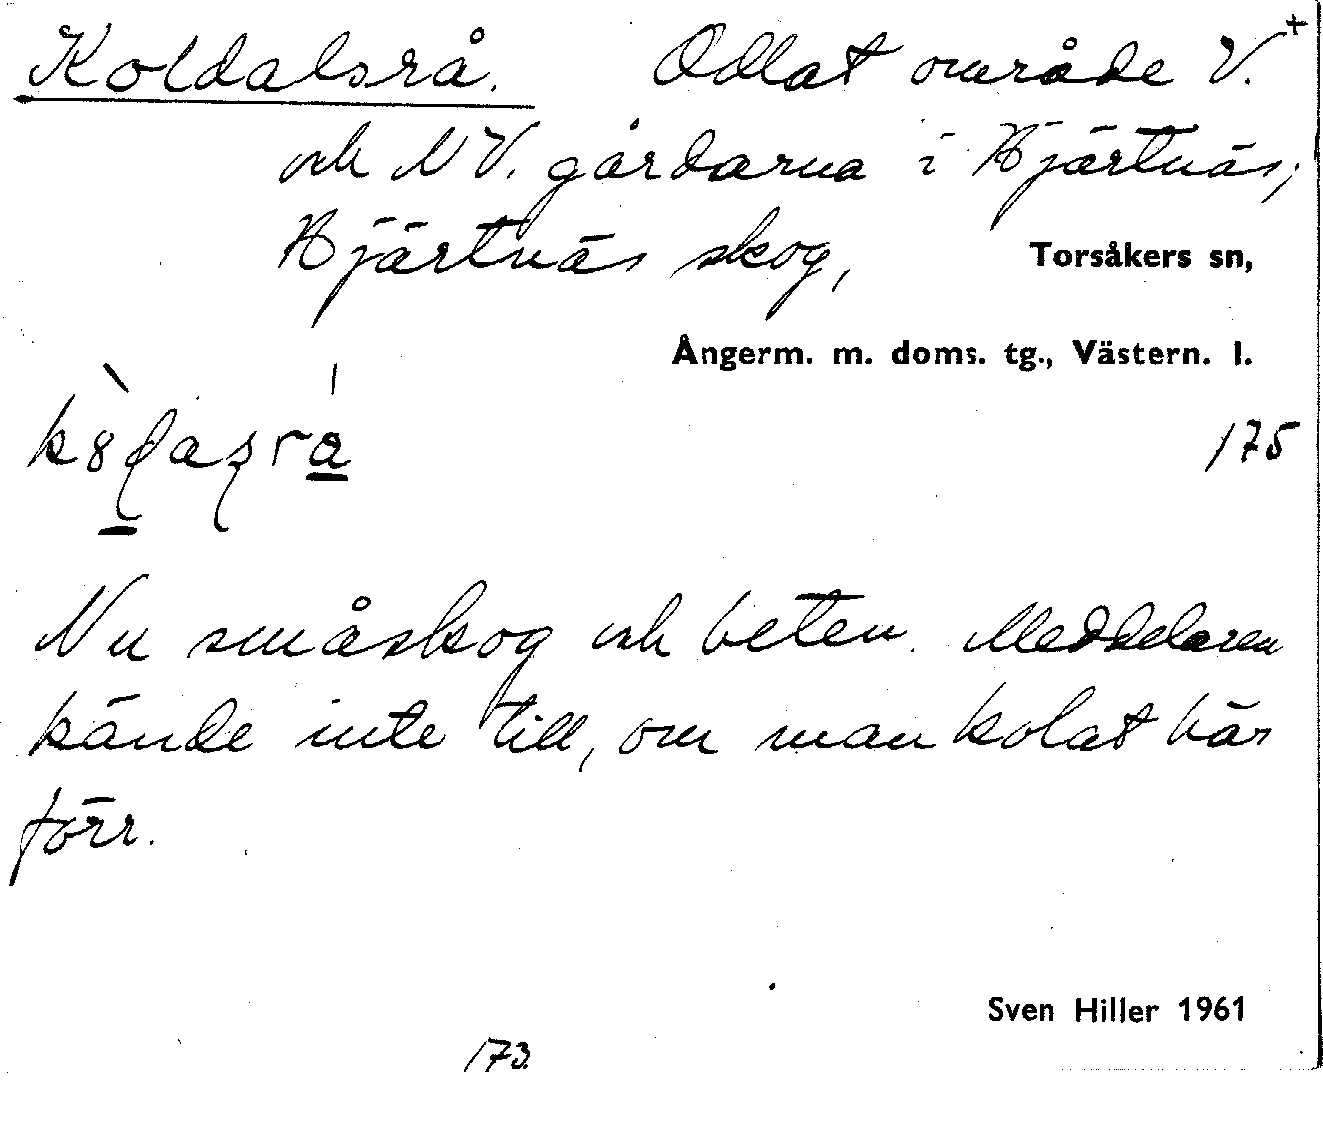 Koldalsrå. Odlat område V. +
och NV. gårdarna i Hjärtnäs,
Hjärtnäs skog, Torsåkers sn,
Ångerm. m. doms. tg., Västern. l.
175
Nu småskog och beten. Meddelaren
kände inte till, om man kolat här
förr.
Sven Hiller 1961
173